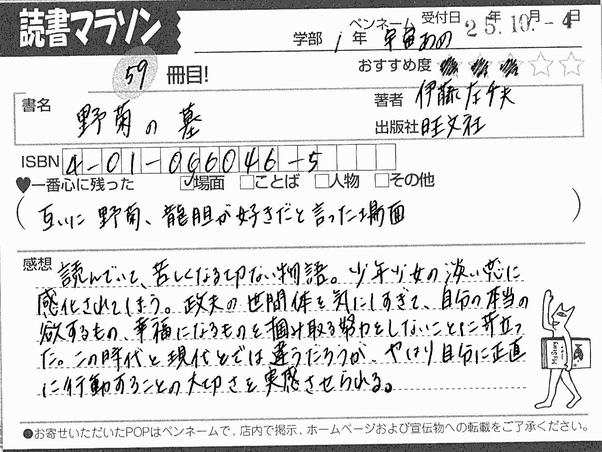 読書マラソン
学部 1年 ペンネーム 宇宙あの 受付日 25年10月-4日
59冊目!
おすすめ度 ★★★☆☆
書名 野菊の墓
著者 伊藤左千夫
出版社 旺文社
ISBN 4-01-066046-5
♥一番心に残った ☑場面 □ことば □人物 □その他
(互いに野菊、龍胆が好きだと言った場面)
感想 読んでいて、苦しくなる切ない物語。少年少女の淡い恋に
感化されてしまう。政夫の世間体を気にしすぎて、自分の本当の
欲するもの、幸福になるものを掴み取る努力をしないことに苛立っ
た。この時代と現代とでは違うだろうが、やはり自分に正直
に行動することの大切さを実感させられる。
●お寄せいただいたPOPはペンネームで、店内で掲示、ホームページおよび宣伝物への転載をご了承ください。